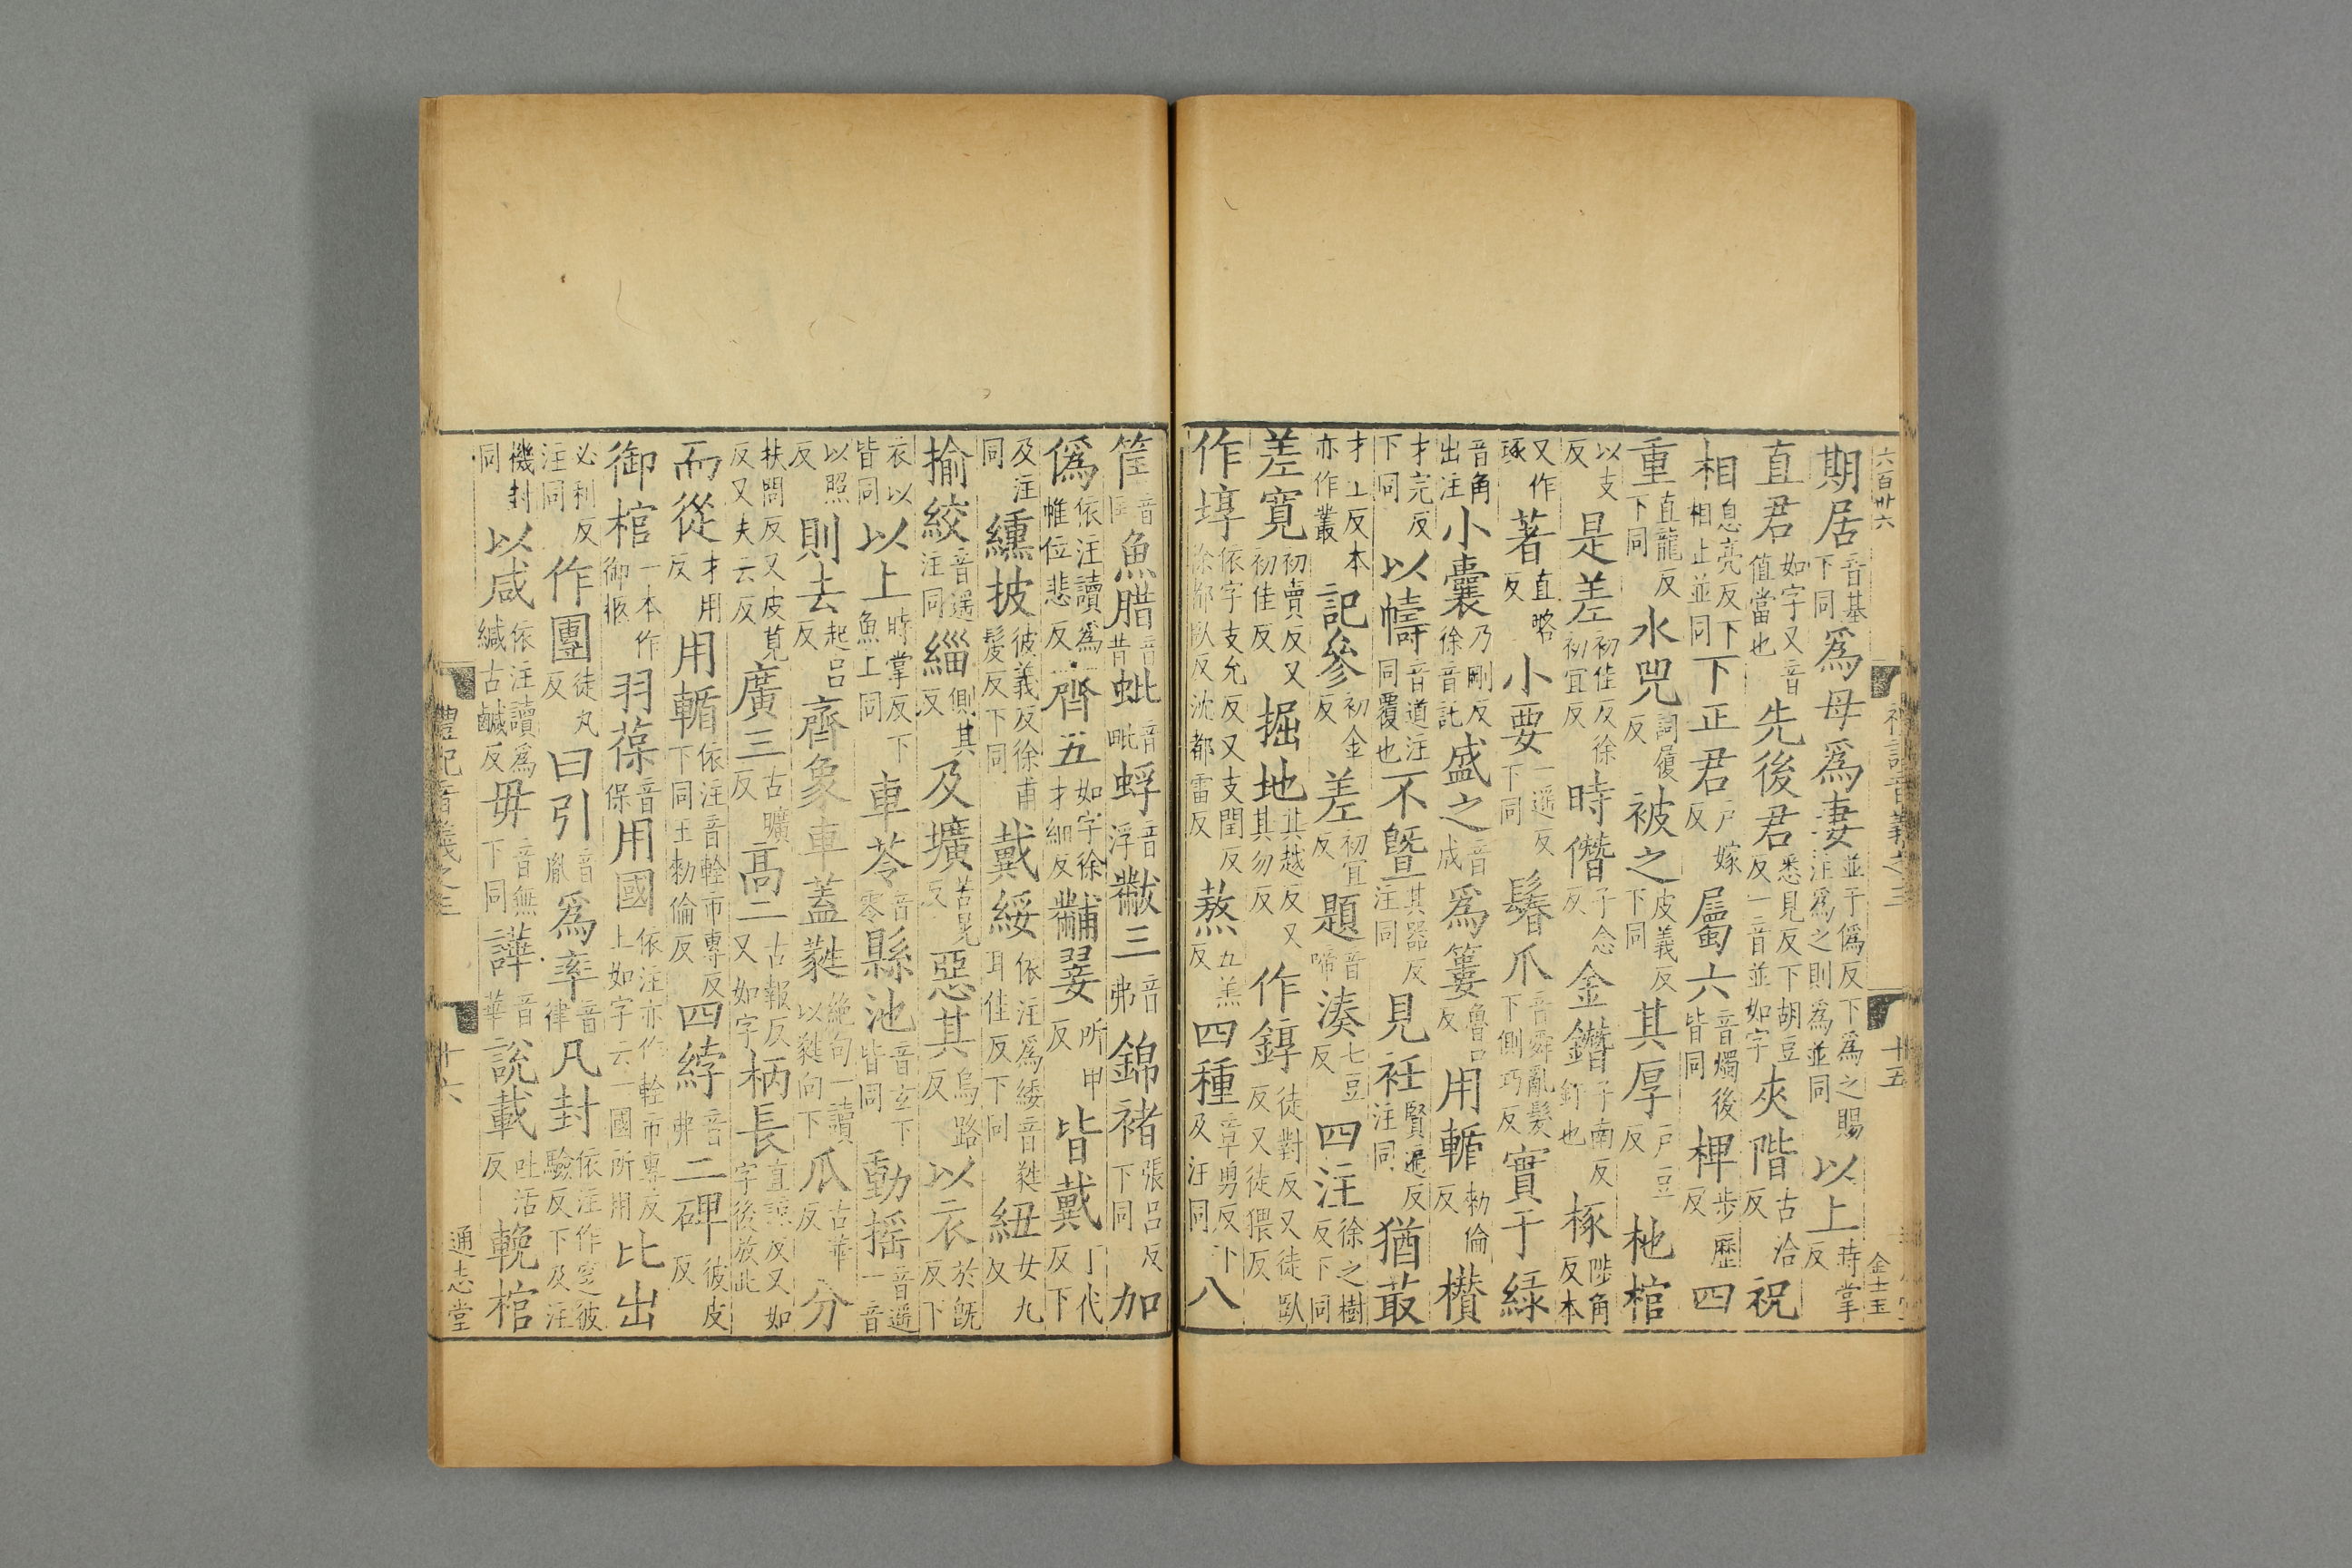 六百卅六
禮記音義之三
十五
金士玉
期居音基下同爲母爲妻並于僞反下爲之賜注爲之則爲並同以上時掌反
直君如字又音值當也先後君悉見反下胡豆反一音並如字夾階古洽反祝
相息亮反下相止並同下正君戸嫁反屬六音燭後皆同椑步歷反四
重直龍反下同水兕詞履反被之皮義反下同其厚戸豆反杝棺
以支反是差初佳反徐初宜反時僭子念反金鐕子南反釘也椓陟角反本
又作琢著直略反小要一遥反下同鬊爪音舜亂髮下側巧反實于綠
音角出注小囊乃剛反徐音託盛之音成爲簍魯口反用輴勑倫反欑
才完反下同以幬音道注同覆也不曁其器反注同見衽賢遍反注同猶菆
才工反本亦作叢記參初金反差初宜反題音啼湊七豆反四注徐之樹反下同
差寛初賣反又初佳反掘地其越反又其勿反作錞徒對反又徒臥反又徒猥反
作埻依字支允反又支閏反徐都臥反沈都雷反熬五羔反四種章勇反下及注同八
筐音匡魚腊音昔蚍音毗蜉音浮黻三音弗錦褚張呂反下同加
僞依注讀爲帷位悲反齊五如字徐才細反黼翣所甲反皆戴丁代反下
及注同纁披彼義反徐甫髲反下同戴綏依注爲緌音蕤耳佳反下同紐女九反
揄絞音遥注同緇側其反及壙苦晃反惡其烏路反以衣於旣反下
衣以皆同以上時掌反下魚上同車苓音零縣池音玄下皆同動摇音遥一音
以照反則去起呂反齊象車蓋蕤絶句一讀以蕤向下瓜古華反分
扶問反又皮莧反又夫云反廣三古曠反高二古報反又如字柄長直諒反又如字後放此
而從才用反用輴依注音輇市專反下同王勑倫反四綍音弗二碑彼皮反
御棺一本作御柩羽葆音保用國依注亦作輇市專反上如字云一國所用比出
必利反注同作團徒丸反曰引音胤爲率音律凡封依注作窆彼驗反下及注
機封同以咸依注讀爲緘古鹹反毋音無下同譁音華說載吐活反輓棺
禮記音義之三
十六
通志堂